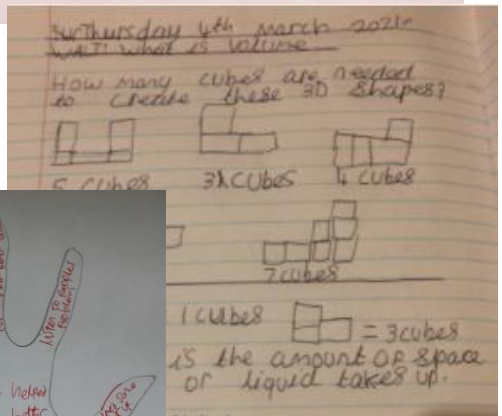 Thursday 4th March 2021
WALT: What is volume
How many cubes are needed
to create these 3D shapes?
5 cubes 3 cubes 4 cubes
7 cubes
1 cubes = 3 cubes
is the amount of space
or liquid takes up.
Listen to peoples
problems
helped
better